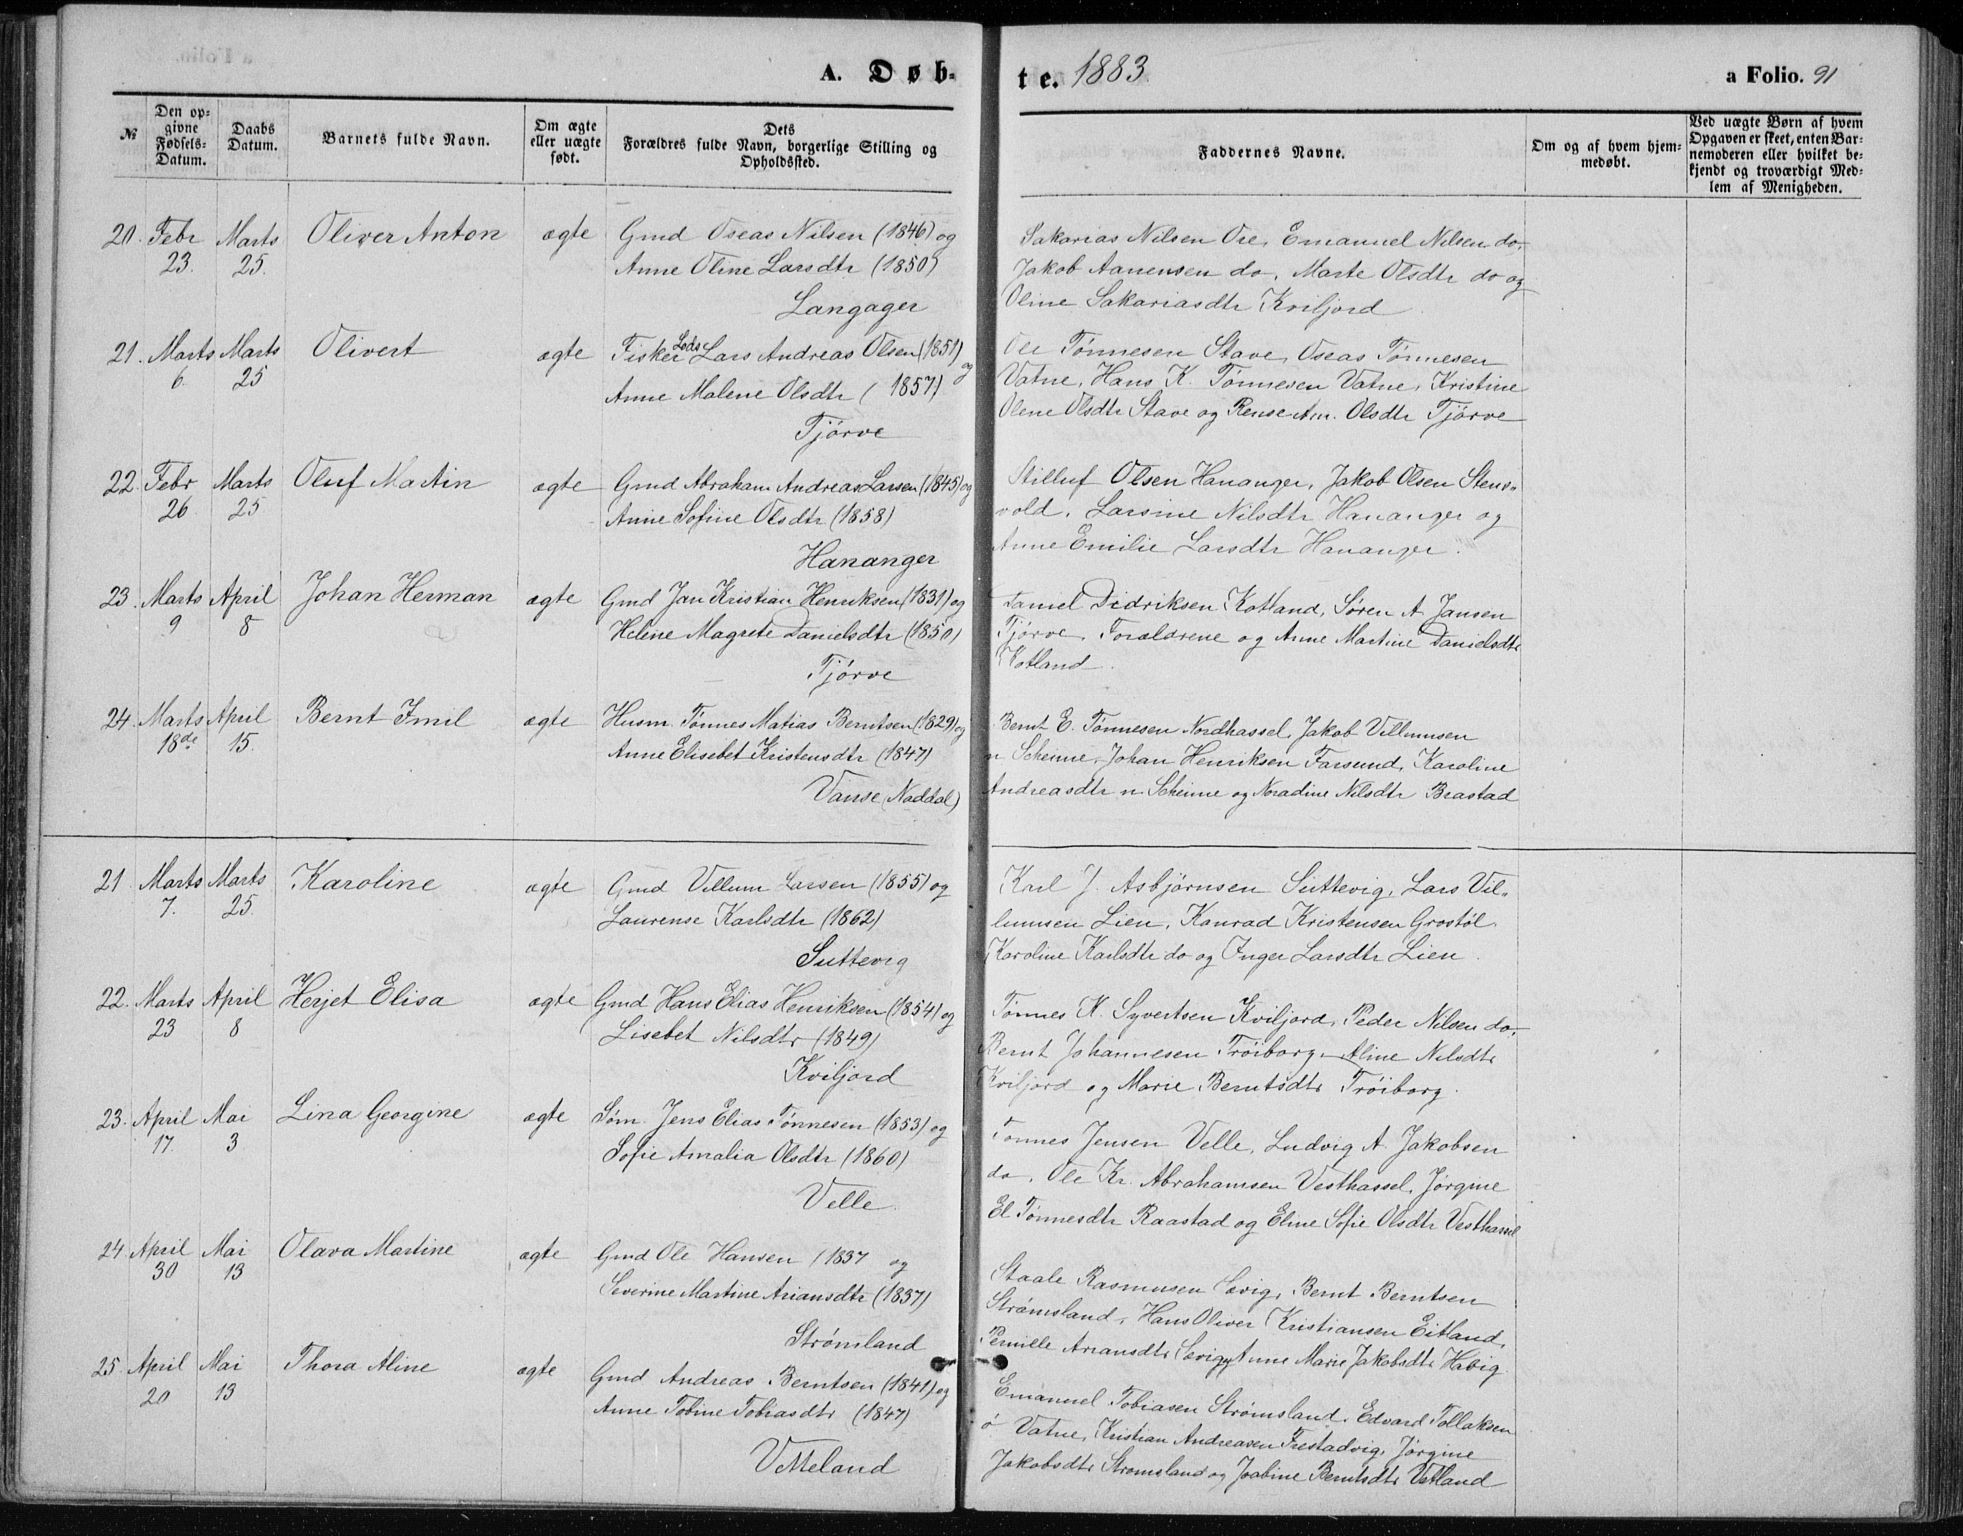 A. Døb-
te. 1883
a Folio. 91
№
Den opgivne Fødsels-Datum.
Daabs Datum.
Barnets fulde Navn.
Om ægte eller uægte født.
Dets Forældres fulde Navn, borgerlige Stilling og Opholdssted.
Faddernes Navne.
Om og af hvem hjemmedøbt.
Ved uægte Børn af hvem Opgaven er skeet, enten Barnemoderen eller hvilket bekjendt og troværdigt Medlem af Menigheden.
20. Febr Marts Oliver Anton ægte Gmd Oseas Nilsen (1846) og
23. 25. Anne Oline Larsdtr (1850)
Langager
Sakarias Nilsen Ore, Emanuel Nilsen do,
Jakob Aanensen do, Marte Olsdtr do og
Oline Sakariasdtr Kviljord
21. Marts Marts Olivert ægte Fisker Lods Lars Andreas Olsen (1851) og
6. 25 Anne Malene Olsdtr (1857)
Tjørve
Ole Tønnesen Stave, Oseas Tønnesen
Vatne, Hans K. Tønnesen Vatne, Kristine
Olene Olsdtr Stave og Rense Am. Olsdtr Tjørve
22. Febr Marts Oluf Martin ægte Gmd Abraham Andreas Larsen (1845) og
26 25 Anne Sofine Olsdtr (1858)
Hananger
Stilluf Olsen Hananger, Jakob Olsen Stens-
vold, Larsine Nilsdtr Hananger og
Anne Emilie Larsdtr Hananger.
23. Marts April Johan Herman ægte Gmd Jan Kristian Henriksen (1831) og
9 8 Heline Magrete Danielsdtr (1850)
Tjørve
Daniel Didriksen Kotland, Søren A Jansen
Tjørve, Forældrene og Anne Martine Danielsdtr
Kotland.
24. Marts April Bernt Imil ægte Husm. Tønnes Matias Berntsen (1829) og
18de 15. Anne Elisebet Kristensdtr (1847)
Vanse (Naddal)
Bernt E. Tønnesen Nordhassel, Jakob Villumsen
n Scheime, Johan Henriksen Farsund, Karoline
Andreasdtr n. Scheime og Noradine Nilsdtr Brastad
21 Marts Marts Karoline ægte Gmd Villum Larsen (1855) og
7. 25. Laurense Karlsdtr (1862)
Suttevig
Karl J. Asbjørnsen Suttevig, Lars Vil-
lumsen Lien, Konrad Kristensen Grostøl
Karoline Karlsdtr do og Inger Larsdtr Lien.
22. Marts April Herjet Elisa ægte Gmd Hans Elias Henriksen (1854) og
23 8 Lisebet Nilsdtr (1849)
Kviljord
Tønnes K. Syvertsen Kviljord, Peder Nilsen do,
Bernt Johannesen Trøiborg, Aline Nilsdtr
Kviljord og Marie Berntsdtr Trøiborg.
23. April Mai Lina Georgine ægte Søm. Jens Elias Tønnesen (1853) og
17. 3 Sofie Amalia Olsdtr (1860)
Velle
Tønnes Jensen Velle, Ludvig A Jakobsen
do, Ole Kr. Abrahamsen Vesthassel, Jørgine
El Tønnesdtr Raastad og Eline Sofie Olsdtr Vesthassel
24. April Mai Olava Martine ægte Gmd Ole Hansen (1837 og
30 13 Severine Martine Ariansdtr (1837)
Strømsland
Staale Rasmusen Sævig, Bernt Berntsen
Strømsland, Hans Oliver Kristiansen Eitland,
Pernille Ariansdtr Sævig og Anne Marie Jakobsdtr Habig.
25. April Mai Thora Aline ægte Gmd Andreas Berntsen (1841) og
20 13 Anne Tobine Tobiasdtr (1847)
Vetteland
Emanuel Tobiasen Strømsland, Edvard Tollaksen
ø Vatne, Kristian Andreasen Frestadvig, Jørgine
Jakobsdtr Strømsland og Joabine Berntsdtr Vetland